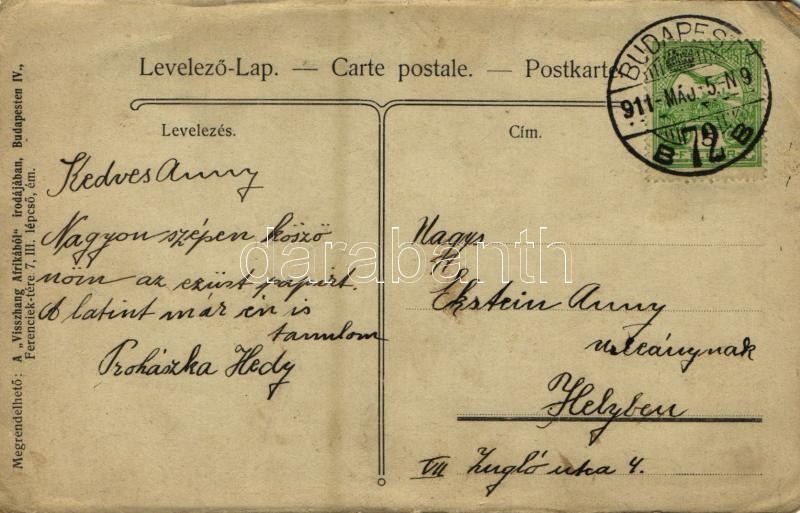 Levelező-Lap. — Carte postale. — Postkarte
BUDAPEST
911-MÁJ-5.N9
B 72 B
Levelezés.
Cím.
Kedves Anny
Nagyon szépen köszö
nöm az ezüst papirt.
A latint már én is
tanulom
Prohászka Hedy
Nagys
Ekstein Anny
urleánynak
Helyben
VII Zugló utca 4.
Megrendelhető: A „Visszhang Afrikából" irodájában, Budapesten IV.,
Ferenciek-tére 7, III. lépcső, ém.
darabanth